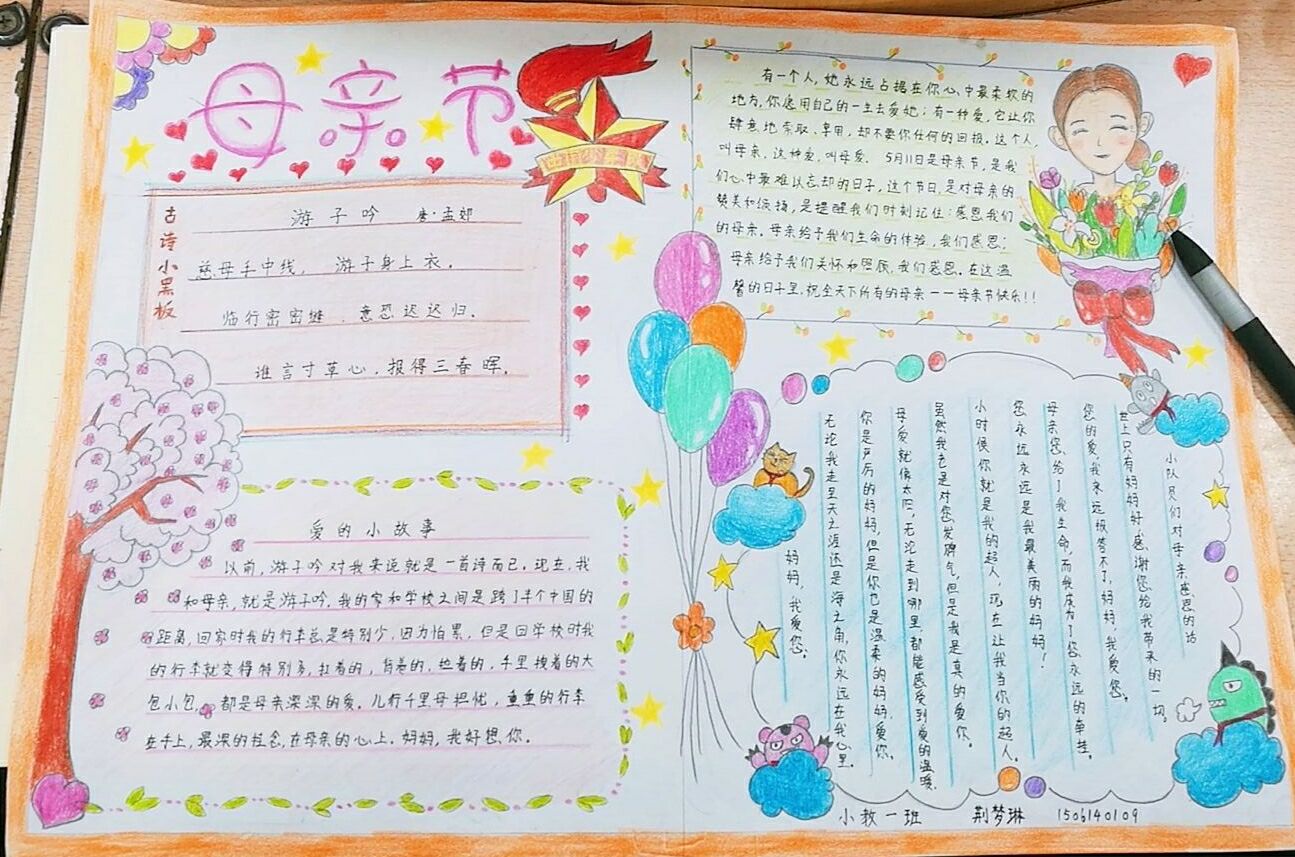 母亲节
古诗小黑板
游子吟 唐·孟郊
慈母手中线， 游子身上衣。
临行密密缝，意恐迟迟归。
谁言寸草心，报得三春晖。
有一个人，她永远占据在你心中最柔软的
地方，你愿用自己的一生去爱她；有一种爱，它让你
肆意地索取、享用，却不要你任何的回报。这个人，
叫母亲，这种爱，叫母爱。 5月11日是母亲节，是我
们心中最难以忘却的日子，这个节日，是对母亲的
赞美和颂扬，是提醒我们时刻记住：感恩我们
的母亲。母亲给予我们生命的体验，我们感恩；
母亲给予我们关怀和照顾，我们感恩。在这温
馨的日子里，祝全天下所有的母亲——母亲节快乐！！
爱的小故事
以前，游子吟对我来说就是一首诗而已。现在，我
和母亲，就是游子吟。我的家和学校之间是跨了半个中国的
距离，回家时我的行李总是特别少，因为怕累，但是回学校时我
的行李就变得特别多，拉着的，背着的，抱着的，手里拽着的大
包小包，都是母亲深深的爱。儿行千里母担忧，重重的行李
在手上，最深的挂念，在母亲的心上。妈妈，我好想你。
小队员们对母亲感恩的话
世上只有妈妈好，感谢您给我带来的一切。
您的爱，我永远报答不了，妈妈，我爱您。
母亲您给了我生命，而我成为了您永远的牵挂。
您永远永远是我最美丽的妈妈！
小时候你就是我的超人，现在让我当你的超人。
虽然我老是对您发脾气，但是我是真的爱你。
母爱就像太阳，无论走到哪里，都能感受到爱的温暖。
你是严厉的妈妈，但是你也是温柔的妈妈，爱你。
无论我走至天之涯还是海之角，你永远在我心里。
妈妈，我爱您。
小教一班 荆梦琳 1506140109